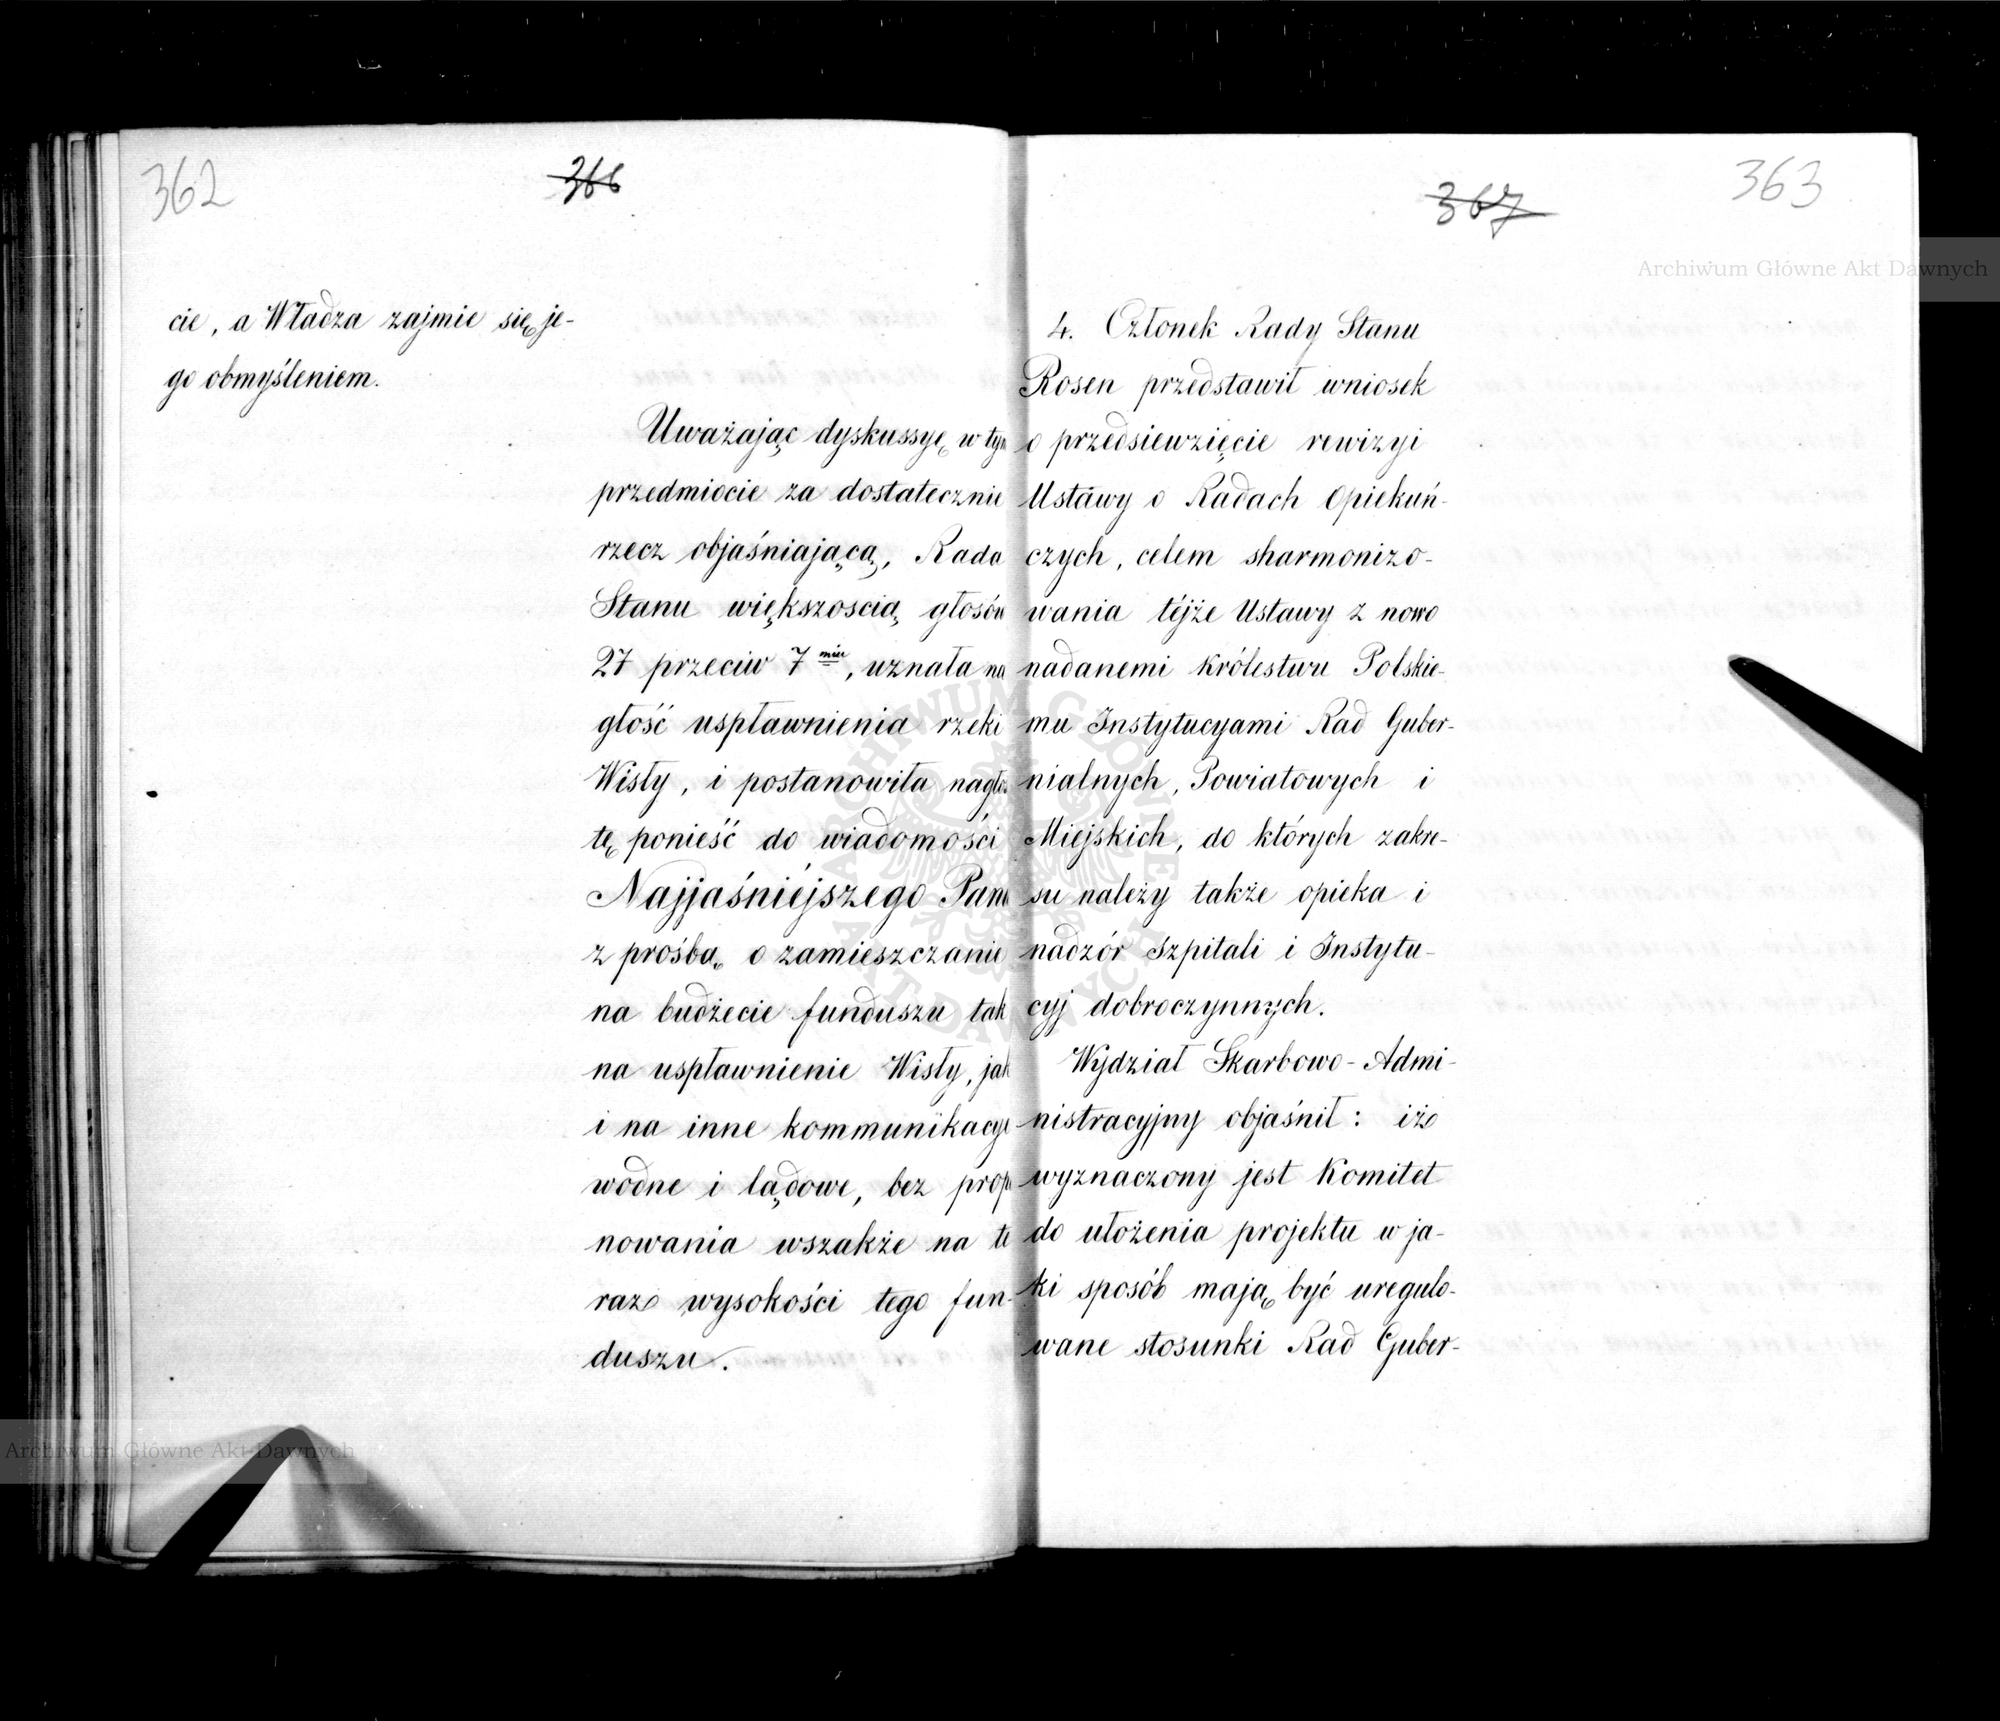 362
366
cie, a Władza zajmie się je-
go obmyśleniem.
Uważając dyskussyę w tym
przedmiocie za dostatecznie
rzecz objaśniającą, Rada
Stanu większoscią głosów
27 przeciw 7 miu, uznała na
głość uspławnienia rzeki
Wisły, i postanowiła nagło
tę ponieść do wiadomości
Najjaśniéjszego Pana
z prośbą o zamieszczanie
na budżecie funduszu tak
na uspławnienie Wisły, jak
i na inne kommunikacye
wodne i lądowe, bez propo
nowania wszakże na te
raz wysokości tego fun-
duszu.
367
363
4. Członek Rady Stanu
Rosen przedstawił wniosek
o przedsiewzięcie rewizyi
Ustawy o Radach Opiekuń-
czych, celem sharmonizo-
wania téjże Ustawy z nowo
nadanemi Królestwu Polskie-
mu Instytucyami Rad Guber-
nialnych, Powiatowych i
Miejskich, do których zakre-
su należy także opieka i
nadzór Szpitali i Instytu-
cyj dobroczynnych.
Wydział Skarbowo-Admi-
nistracyjny objaśnił: iż
wyznaczony jest Komitet
do ułożenia projektu w ja-
ki sposób mają być uregulo-
wane stosunki Rad Guber-
Archiwum Główne Akt Dawnych
Archiwum Główne Akt Dawnych
ARCHIWUM GŁÓWNE AKT DAWNYCH